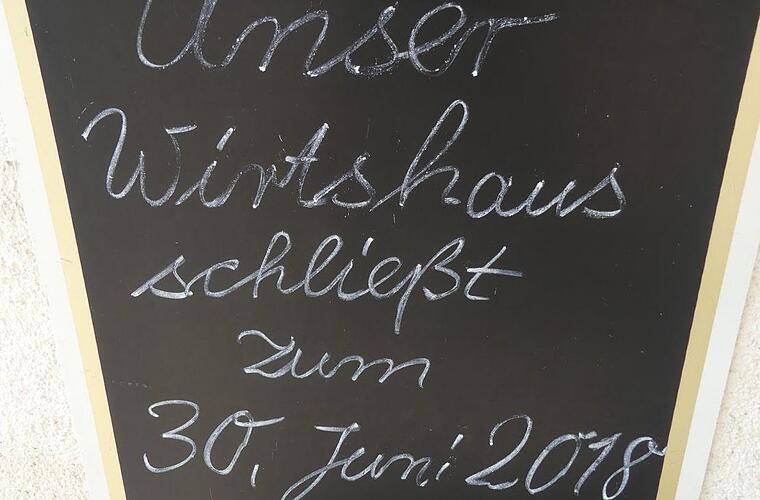 Unser
Wirtshaus
schließt
zum
30. Juni 2018